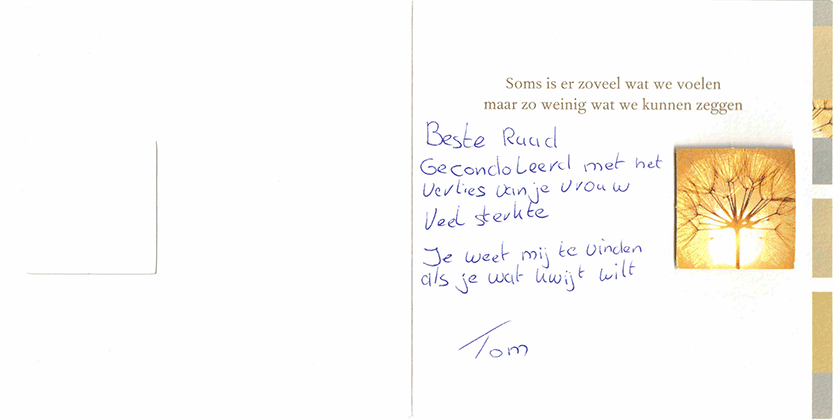 Soms is er zoveel wat we voelen
maar zo weinig wat we kunnen zeggen
Beste Ruud
Gecondoleerd met het
verlies van je vrouw
Veel sterkte
Je weet mij te vinden
als je wat kwijt wilt
Tom